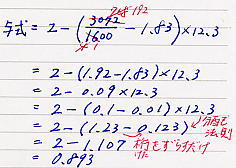 192
与式 = 2 - (3072/1600 - 1.83) × 12.3
= 2 - (1.92 - 1.83) × 12.3
= 2 - 0.09 × 12.3
= 2 - (0.1 - 0.01) × 12.3
= 2 - (1.23 - 0.123) 分配法則
= 2 - 1.107 桁をずらすだけ
= 0.893